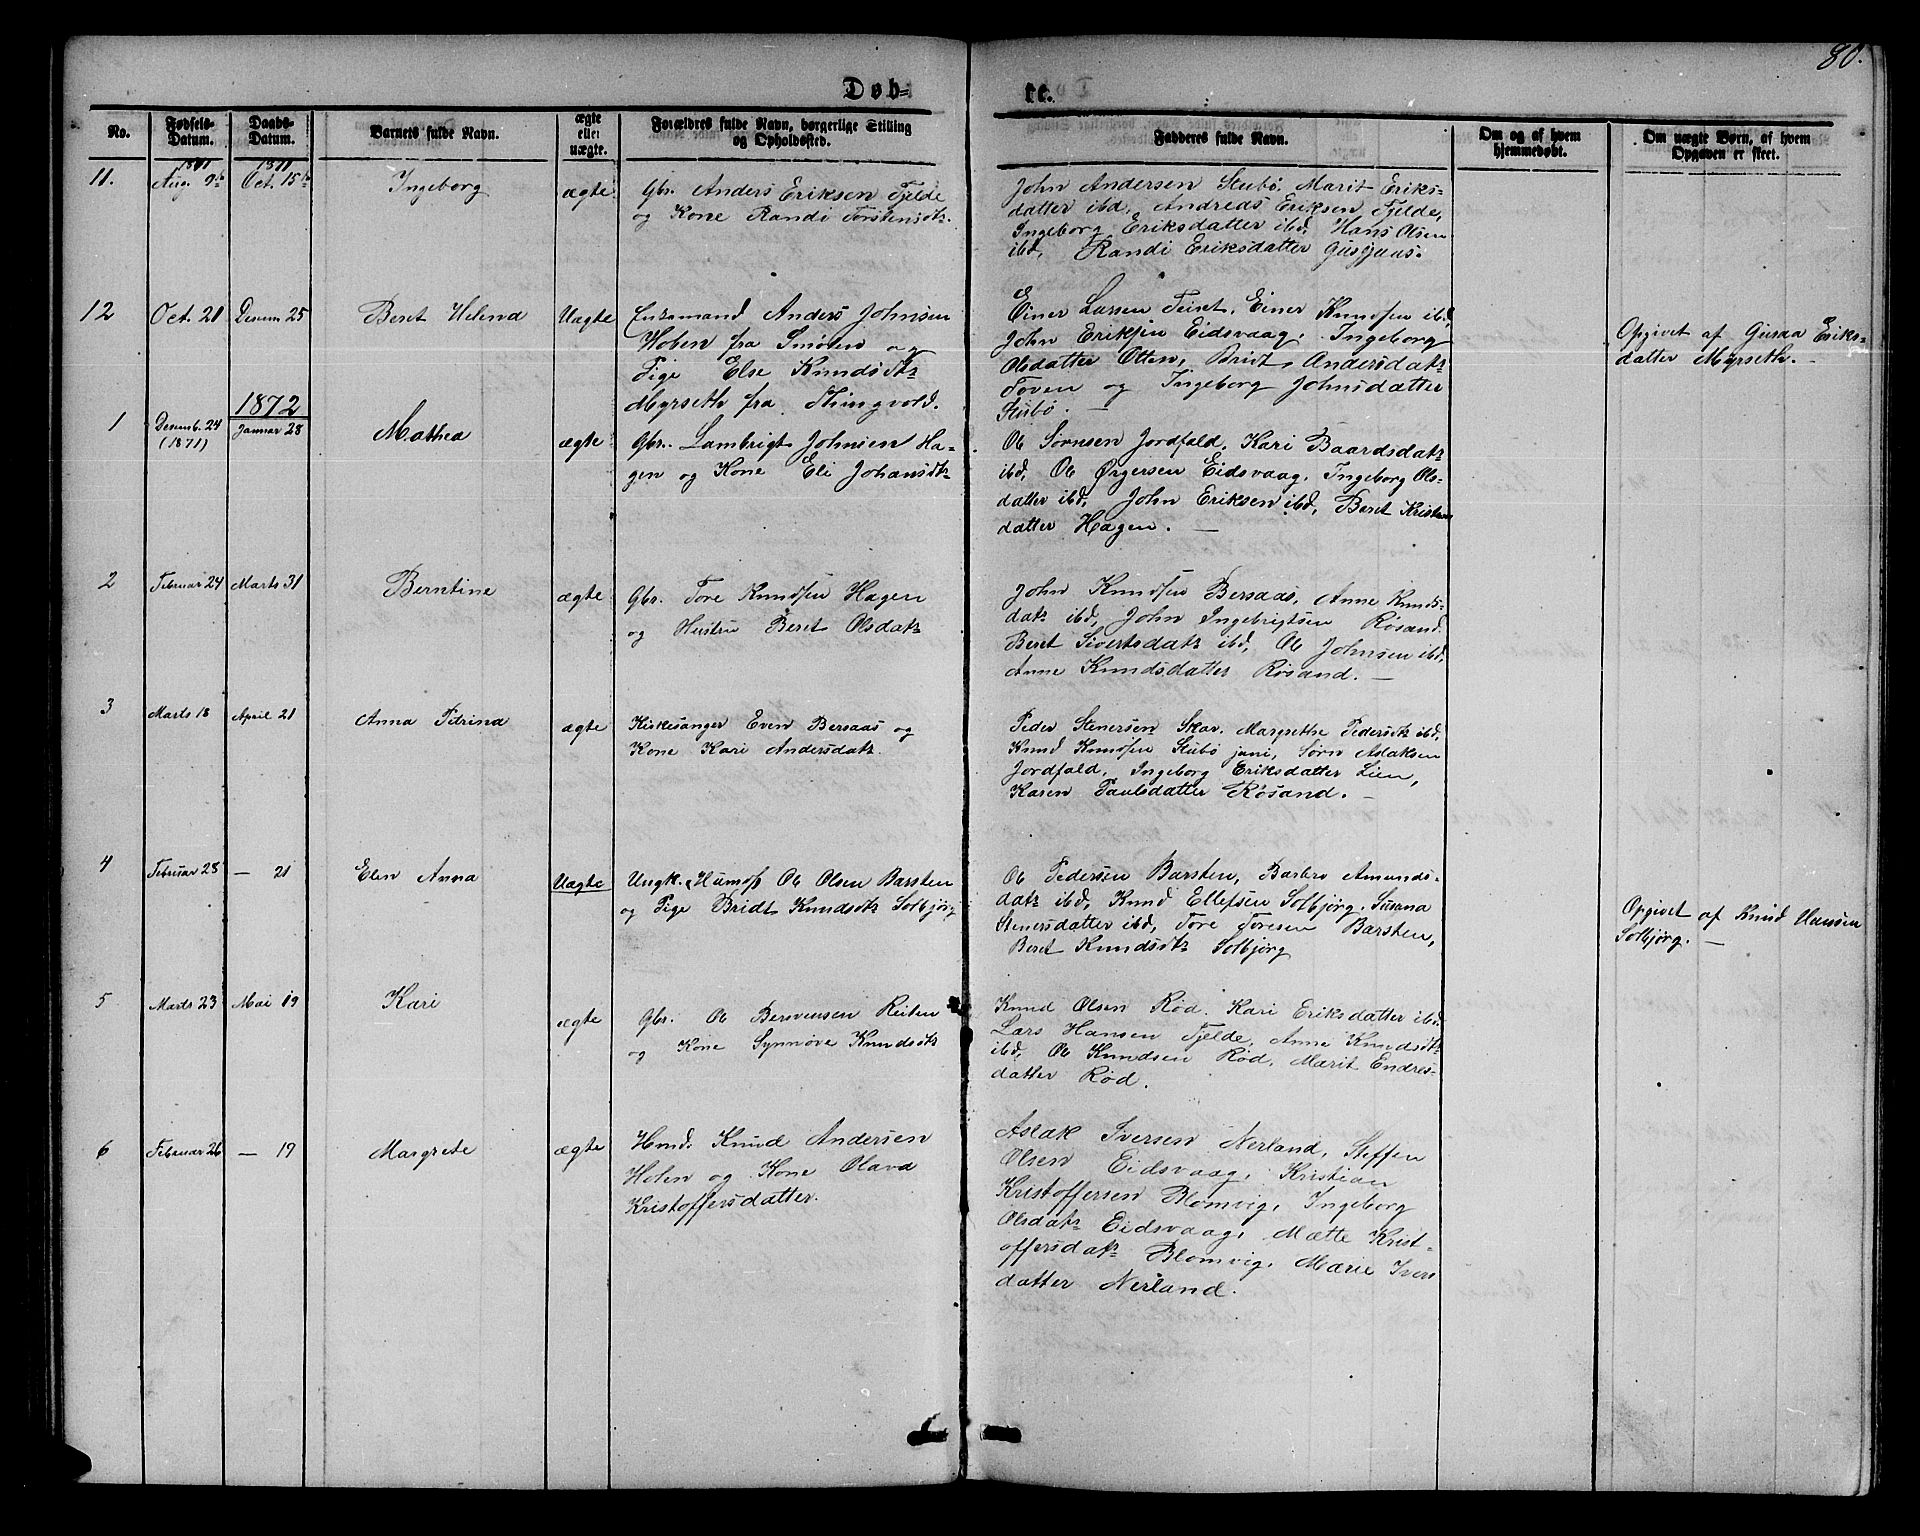 80.
Døb= te.
No.
Fødsels-
Datum.
Daabs-
Datum.
Barnets fulde Navn.
ægte
eller
uægte.
Forældres fulde Navn, borgerlige Stilling
og Opholdssted.
Fadderes fulde Navn.
Om og af hvem
hjemmedøbt.
Om uægte Børn, af hvem
Opgaven er skeet.
1871 1871
11. Aug. 9de Oct. 15de Ingeborg ægte
Gbr. Anders Eriksen Fjelde
og Kone Randi Torstensdtr.
John Andersen Stubø, Marit Eriks-
datter ibd, Andreas Eriksen Fjelde,
Ingeborg Eriksdatter ibd, Hans Olsen
ibd, Randi Eriksdatter Gusjaas.
12 Oct. 21 Desem. 25 Beret Helena Uægte
Enkemand Anders Johnsen
Hoben fra Smølen og
Pige Else Knudsdtr
Myrseth fra Thingvold.
Einer Larsen Teiset, Einer Knudsen ibd,
John Eriksen Eidsvaag, Ingeborg
Olsdatter Otten, Bridt Andersdatr
Toven og Ingeborg Johnsdatter
Stubø.
Opgivet af Guraa Eriks-
datter Myrseth. -
1872
1 Desemb. 24 Januar 28 Mathea ægte
(1871)
Gbr. Lambrigt Johnsen Ha-
gen og Kone Eli Johansdtr
Ole Sørnsen Jordfald, Kari Baardsdatr
ibd, Ole Ørgersen Eidsvaag, Ingeborg Ols-
datter ibd, John Eriksen ibd, Beret Kristens
datter Hagen. -
2 Februar 24 Marts 31 Berntine ægte
Gbr. Tore Knudsen Hagen
og Hustru Beret Olsdatr
John Knudsen Bersaas, Anne Knuds-
datr ibd, John Ingebrigtsen Røsand
Beret Sivertsdatr ibd, Ole Johnsen ibd,
Anne Knudsdatter Røsand. -
3 Marts 18 April 21 Anna Petrina ægte
Kirkesanger Even Bersaas og
Kone Kari Andersdatr.
Peder Stenersen Skar, Margrethe Pedersdtr ibd,
Knud Knudsen Stubø juni, Sørn Aslaksen
Jordfald, Ingeborg Eriksdatter Lien,
Karen Paulsdatter Røsand. -
4 Februar 28 - 21 Elen Anna Uægte
Ungk. Husmds Ole Olsen Barsten
og Pige Bridt Knudsdtr Solbjørg
Ole Pedersen Barsten, Barbro Amunds-
datr ibd, Knud Ellefsen Solbjørg, Susana
Stenersdatter ibd, Tore Toresen Barsten,
Beret Knudsdtr Solbjørg
Opgivet af Knud Hansen
Solbjørg. -
5 Marts 23 Mai 19 Kari ægte
Gbr. Ole Bersvensen Reiten
og Kone Synnøve Knudsdtr
Knud Olsen Rød, Kari Eriksdatter ibd.
Lars Hansen Fjelde, Anne Knudsdtr
ibd, Ole Knudsen Rød, Marit Endres-
datter Rød.
6 Februar 26 - 19 Margrete ægte
Hmd. Knud Andersen
Holen og Kone Olava
Kristoffersdatter.
Aslak Iversen Nerland, Steffen
Olsen Eidsvaag, Kristian
Kristoffersen Blomvig, Ingeborg
Olsdatr Eidsvaag, Mætte Krist-
offersdatr Blomvig, Marie Ivers
datter Nerland.